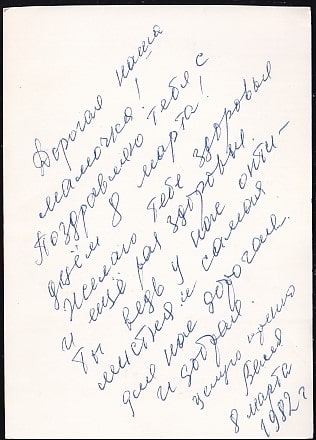 Дорогая наша
мамочка!
Поздравляю тебя с
днём 8 марта!
Желаю тебе здоровья
и ещё раз здоровья.
Ты ведь у нас опти-
мистка и самая
для нас дорогая
и добрая.
Целую нежно
Веня
8 марта
1982 г